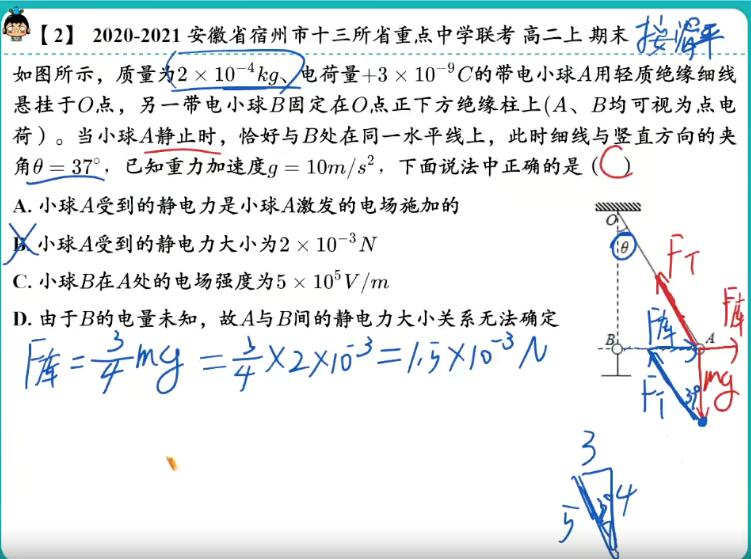 【2】 2020-2021 安徽省宿州市十三所省重点中学联考 高二上 期末
如图所示，质量为2 × 10⁻⁴kg、电荷量+3 × 10⁻⁹C的带电小球A用轻质绝缘细线
悬挂于O点，另一带电小球B固定在O点正下方绝缘柱上(A、B均可视为点电
荷）。当小球A静止时，恰好与B处在同一水平线上，此时细线与竖直方向的夹
角θ = 37°，已知重力加速度g = 10m/s²，下面说法中正确的是（C）
A. 小球A受到的静电力是小球A激发的电场施加的
B. 小球A受到的静电力大小为2 × 10⁻³N
C. 小球B在A处的电场强度为5 × 10⁵V/m
D. 由于B的电量未知，故A与B间的静电力大小关系无法确定
F库 = 3/4 mg = 3/4 ×2×10⁻³ = 1.5×10⁻³ N
O
θ
F_T
F库
F库
B
A
F_T
37°
mg
3
5
4